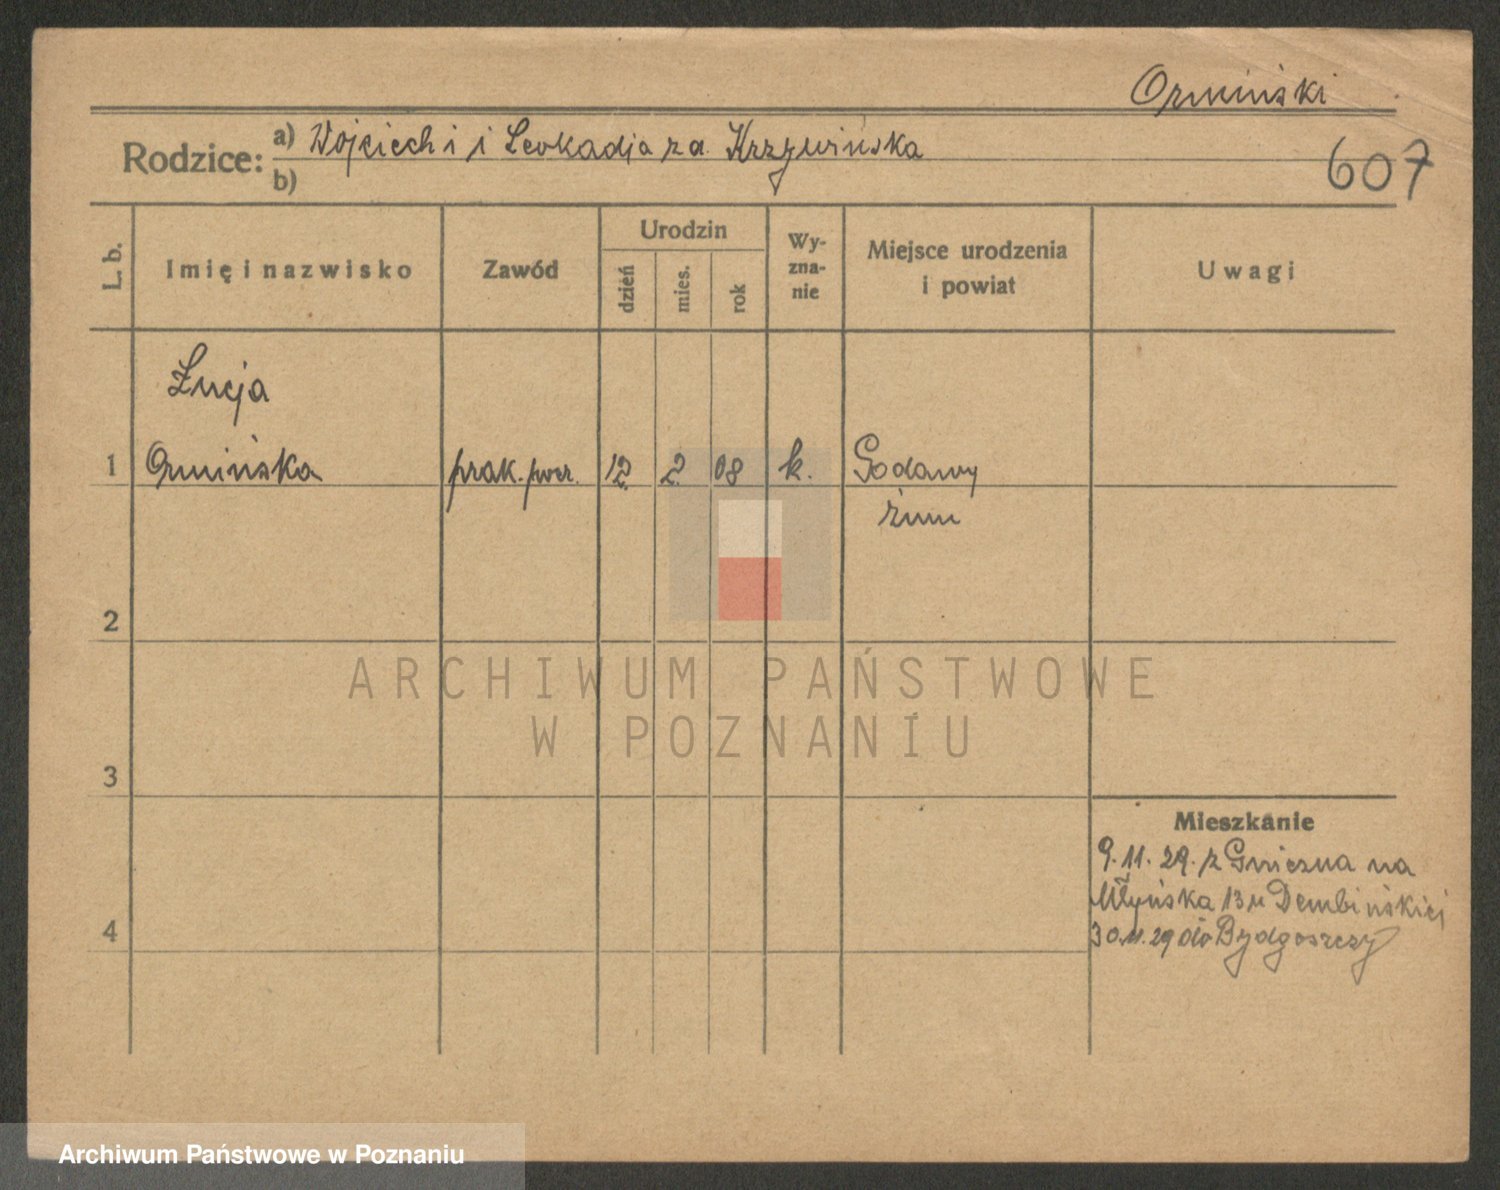 Ormiński
Rodzice: a) Wojciech i i Leokadja za. Krzywińska
b)
607
L. b.
Imię i nazwisko
Zawód
Urodzin
dzień
mies.
rok
Wy-
zna-
nie
Miejsce urodzenia
i powiat
Uwagi
Łucja
1 Ormińska prak. 12. 2. 08 k. Godawy
żnin
2
3
4
Mieszkanie
9.11.29. z Gniezna na
Młyńska 13 u Dembińskiej
30.11.29 do Bydgoszczy
ARCHIWUM PAŃSTWOWE
W POZNANIU
Archiwum Państwowe w Poznaniu